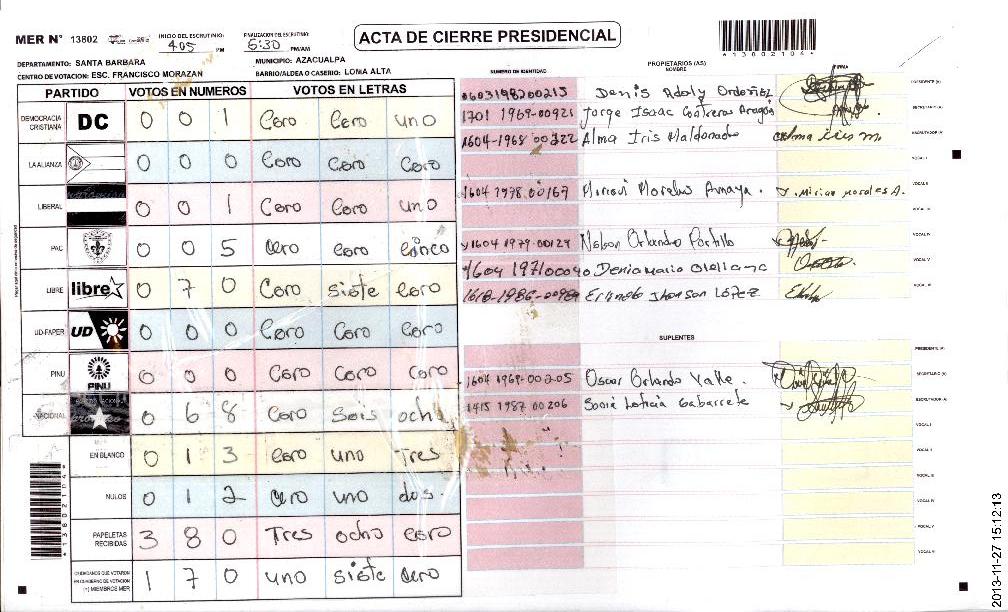 ACTA DE CIERRE PRESIDENCIAL
MER N° 13802
INICIO DEL ESCRUTINIO: 4:05 PM
FINALIZACION DEL ESCRUTINIO: 6:30 PM/AM
*13802104*
DEPARTAMENTO: SANTA BARBARA
MUNICIPIO: AZACUALPA
CENTRO DE VOTACION: ESC. FRANCISCO MORAZAN
BARRIO/ALDEA O CASERIO: LOMA ALTA
PARTIDO VOTOS EN NUMEROS VOTOS EN LETRAS
DEMOCRACIA CRISTIANA DC 0 0 1 Cero Cero uno
LA ALIANZA 0 0 0 Cero Cero Cero
LIBERAL 0 0 1 Cero Cero uno
PAC 0 0 5 cero cero cinco
LIBRE libre 0 7 0 Cero siete Cero
UD-FAPER UD 0 0 0 Cero Cero Cero
PINU PINU 0 0 0 Cero Cero Cero
NACIONAL 0 6 8 Cero Seis ocho
EN BLANCO 0 1 3 Cero uno Tres
NULOS 0 1 2 cero uno dos.
PAPELETAS RECIBIDAS 3 8 0 Tres ocho cero
CIUDADANOS QUE VOTARON EN CUADERNO DE VOTACION (+) MIEMBROS MER 1 7 0 uno siete cero
*13802104*
PROPIETARIOS (AS)
NUMERO DE IDENTIDAD NOMBRE FIRMA
0603198200215 Denis Adoly Ordoñez PRESIDENTE (A)
1701 1969-00921 Jorge Isaac Contreras Aragón SECRETARIO (A)
1604-1968 00322 Alma Iris Maldonado Alma iris m. ESCRUTADOR (A)
VOCAL I
1604 1978 00167 Miriam Morales Amaya. Miriam morales A. VOCAL II
VOCAL III
1604 1979-00129 Nelson Orlando Portillo VOCAL IV
1604 197100040 Denia Maria Orellana VOCAL V
1618-1986-00989 Ernesto Jhonson López VOCAL VI
SUPLENTES
PRESIDENTE (A)
1604 1969-00205 Oscar Orlando Valle. SECRETARIO (A)
1415 1987 00206 Sonia Leticia Gabarrete ESCRUTADOR (A)
VOCAL I
VOCAL II
VOCAL III
VOCAL IV
VOCAL V
VOCAL VI
2013-11-27 15:12:13